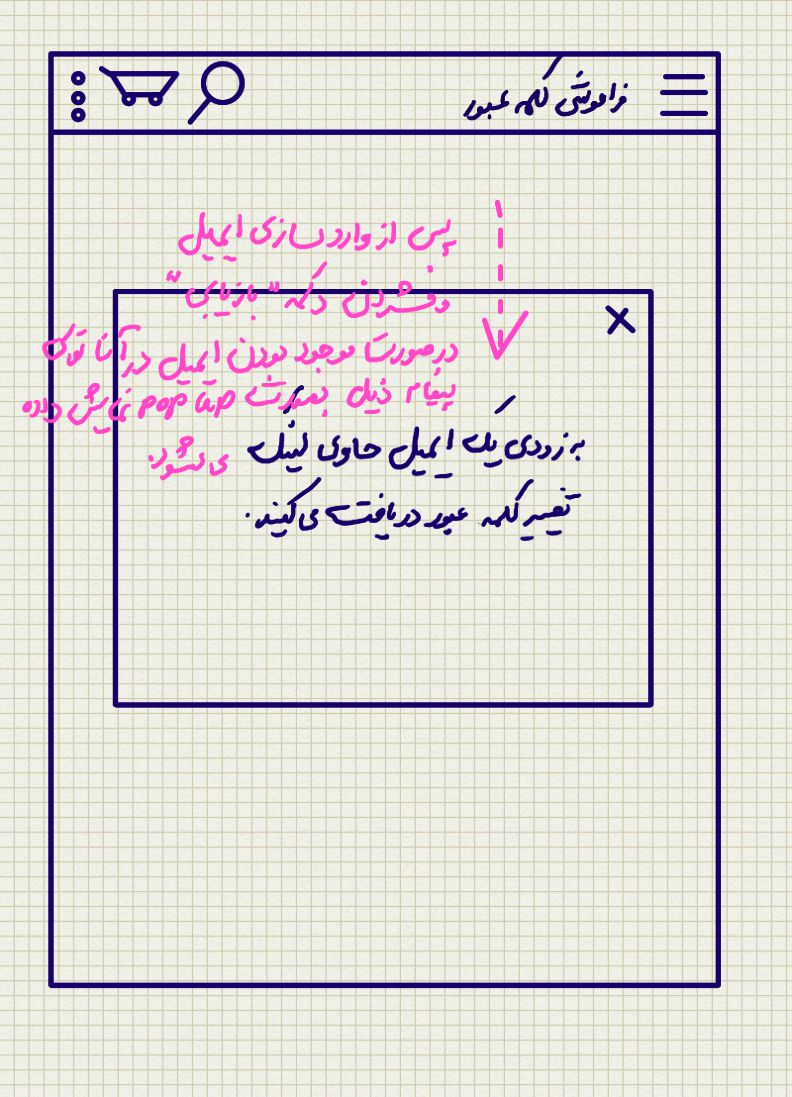 فراموشی کلمه عبور
پس از وارد سازی ایمیل
و فشردن دکمه "بازیابی"
در صورت موجود بودن ایمیل در آنا توک
پیغام ذیل بصورت pop up نمایش داده
می شود.
به زودی یک ایمیل حاوی لینک
تغییر کلمه عبور دریافت می کنید.